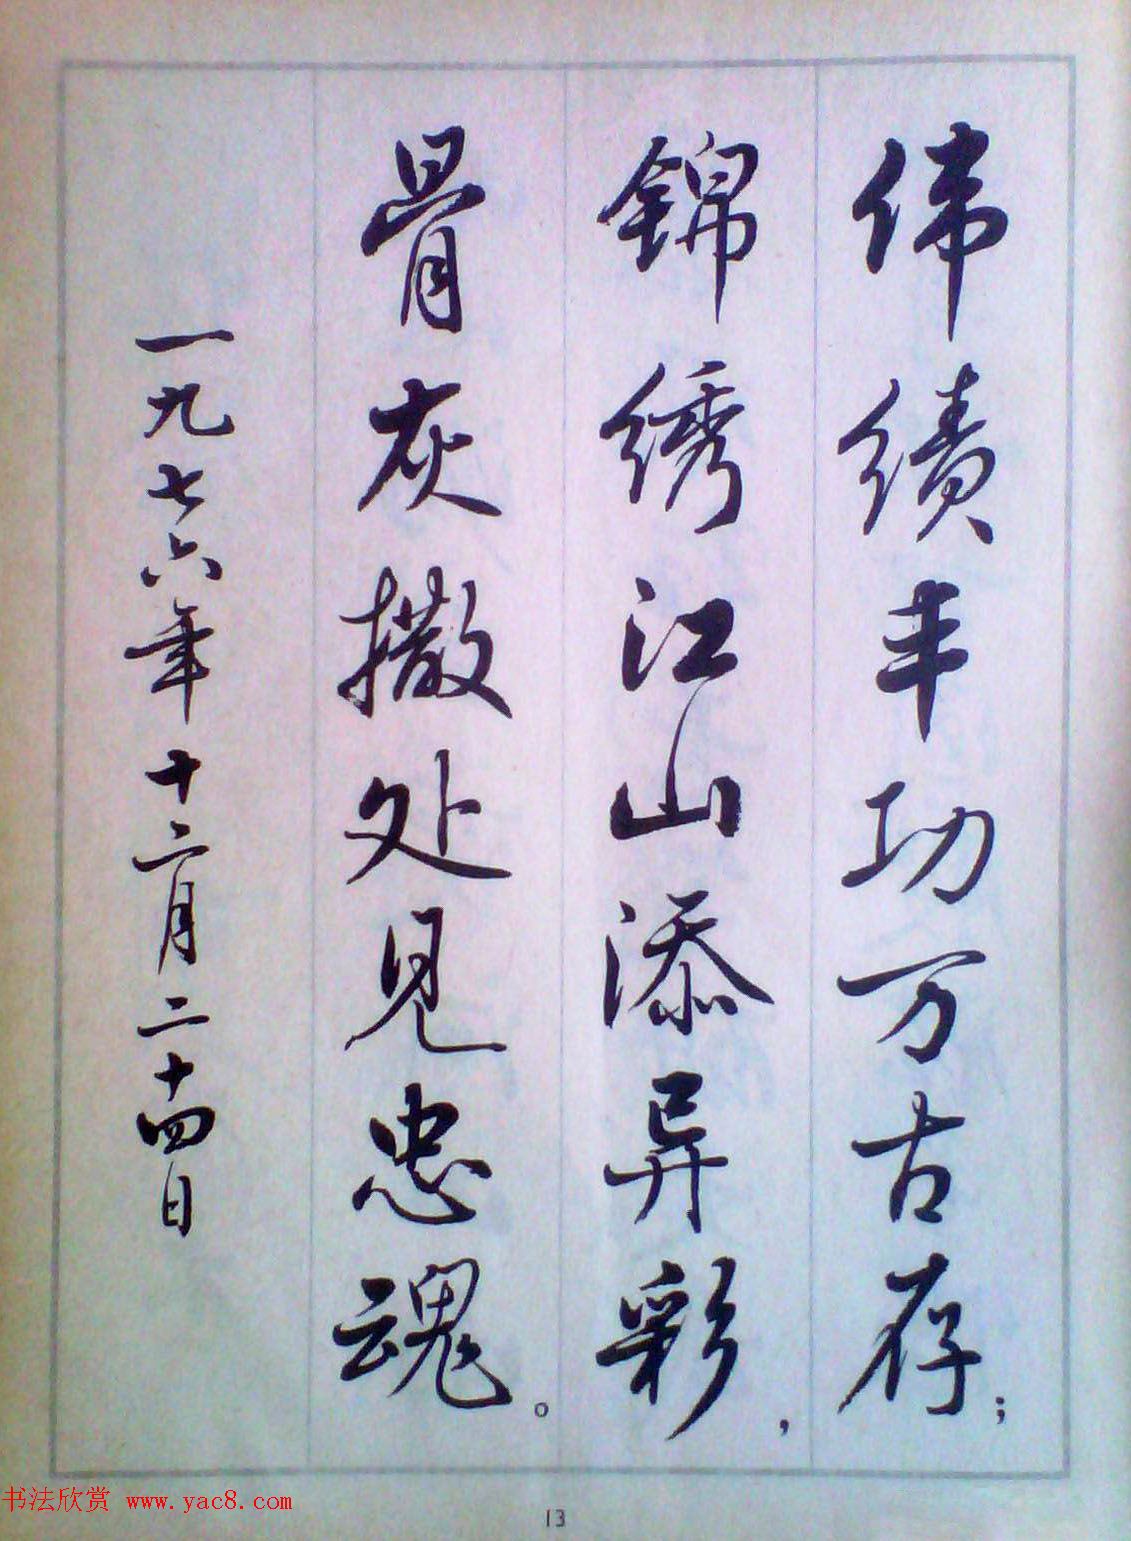 伟绩丰功万古存；
锦绣江山添异彩，
骨灰撒处见忠魂。
一九七六年十二月二十四日
书法欣赏 www.yac8.com
13